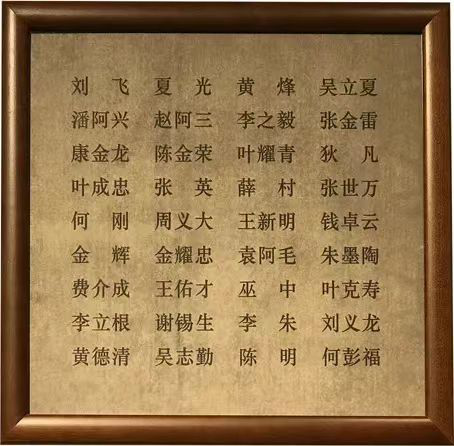 刘飞 夏光 黄烽 吴立夏
潘阿兴 赵阿三 李之毅 张金雷
康金龙 陈金荣 叶耀青 狄凡
叶成忠 张英 薛村 张世万
何刚 周义大 王新明 钱卓云
金辉 金耀忠 袁阿毛 朱墨陶
费介成 王佑才 巫中 叶克寿
李立根 谢锡生 李朱 刘义龙
黄德清 吴志勤 陈明 何彭福